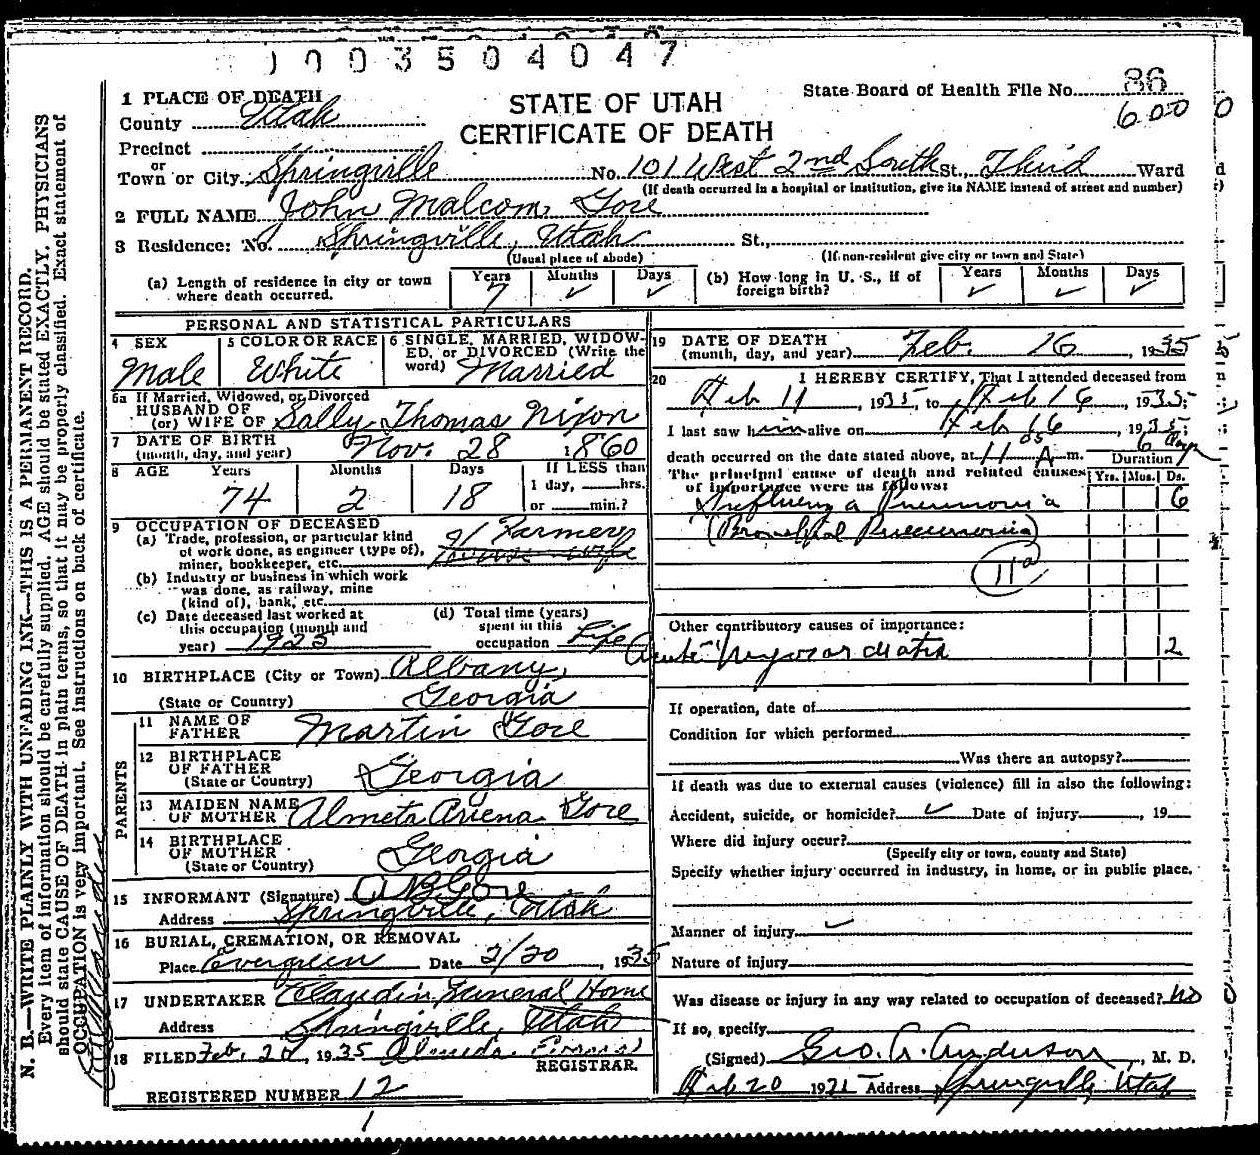 1003504047
1 PLACE OF DEATH
County Utah
STATE OF UTAH
CERTIFICATE OF DEATH
State Board of Health File No. 86
600
Precinct
or
Town or City. Springville No. 101 West 2nd South St., Third Ward
(If death occurred in a hospital or institution, give its NAME instead of street and number)
2 FULL NAME John Malcom Gore
3 Residence: No. Springville, Utah St.,
(Usual place of abode) (If non-resident give city or town and State)
(a) Length of residence in city or town where death occurred. Years 7 Months ✓ Days ✓ (b) How long in U. S., if of foreign birth? Years ✓ Months ✓ Days ✓
PERSONAL AND STATISTICAL PARTICULARS
4 SEX Male
5 COLOR OR RACE White
6 SINGLE, MARRIED, WIDOWED, or DIVORCED (Write the word) Married
6a If Married, Widowed, or Divorced
HUSBAND OF
(or) WIFE OF Sally Thomas Nixon
7 DATE OF BIRTH
(month, day, and year) Nov. 28 1860
8 AGE Years 74 Months 2 Days 18 If LESS than
1 day, hrs.
or min.?
9 OCCUPATION OF DECEASED
(a) Trade, profession, or particular kind
of work done, as engineer (type of),
miner, bookkeeper, etc. Farmer
(b) Industry or business in which work
was done, as railway, mine
(kind of), bank, etc.
(c) Date deceased last worked at
this occupation (month and
year) 1925
(d) Total time (years)
spent in this
occupation Life
10 BIRTHPLACE (City or Town) Albany,
(State or Country) Georgia
PARENTS
11 NAME OF
FATHER Martin Gore
12 BIRTHPLACE
OF FATHER
(State or Country) Georgia
13 MAIDEN NAME
OF MOTHER Almeta Ariena Gore
14 BIRTHPLACE
OF MOTHER
(State or Country) Georgia
15 INFORMANT (Signature) Gore
Address Springville, Utah
16 BURIAL, CREMATION, OR REMOVAL
Place Evergreen Date 2/20, 1935
17 UNDERTAKER Claudin Funeral Home
Address Springville, Utah
18 FILED Feb. 1935 Almeda
REGISTRAR.
REGISTERED NUMBER 12
1
19 DATE OF DEATH
(month, day, and year) Feb. 16, 1935
20 I HEREBY CERTIFY, That I attended deceased from
Feb 11, 1935, to Feb 16, 1935;
I last saw him alive on Feb 16, 1935;
death occurred on the date stated above, at 11 05 A m. 6 Days
Duration
The principal cause of death and related causes
of importance were as follows: Yrs. Mos. Ds.
Influenza Pneumonia 6
(Bronchial Pneumonia)
11a
Other contributory causes of importance:
Acute Myocarditis 2
If operation, date of
Condition for which performed
Was there an autopsy?
If death was due to external causes (violence) fill in also the following:
Accident, suicide, or homicide? ✓ Date of injury, 19
Where did injury occur?
(Specify city or town, county and State)
Specify whether injury occurred in industry, in home, or in public place.
Manner of injury ✓
Nature of injury
Was disease or injury in any way related to occupation of deceased? No
If so, specify
(Signed) Geo. A. Anderson, M. D.
Feb 20 1935 Address Springville Utah
N. B.—WRITE PLAINLY WITH UNFADING INK—THIS IS A PERMANENT RECORD.
Every item of information should be carefully supplied. AGE should be stated EXACTLY. PHYSICIANS
should state CAUSE OF DEATH in plain terms, so that it may be properly classified. Exact statement of
OCCUPATION is very important. See instructions on back of certificate.